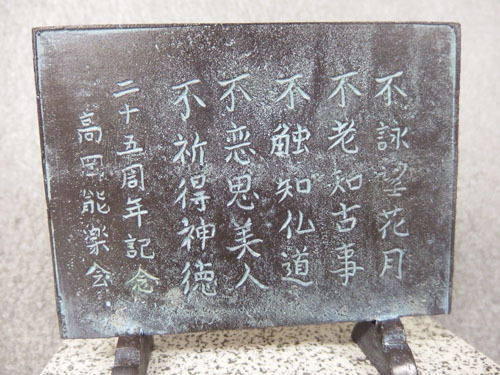 不詠望花月
不老知古事
不触知仏道
不恋思美人
不祈得神徳
二十五周年記念
高岡能楽会